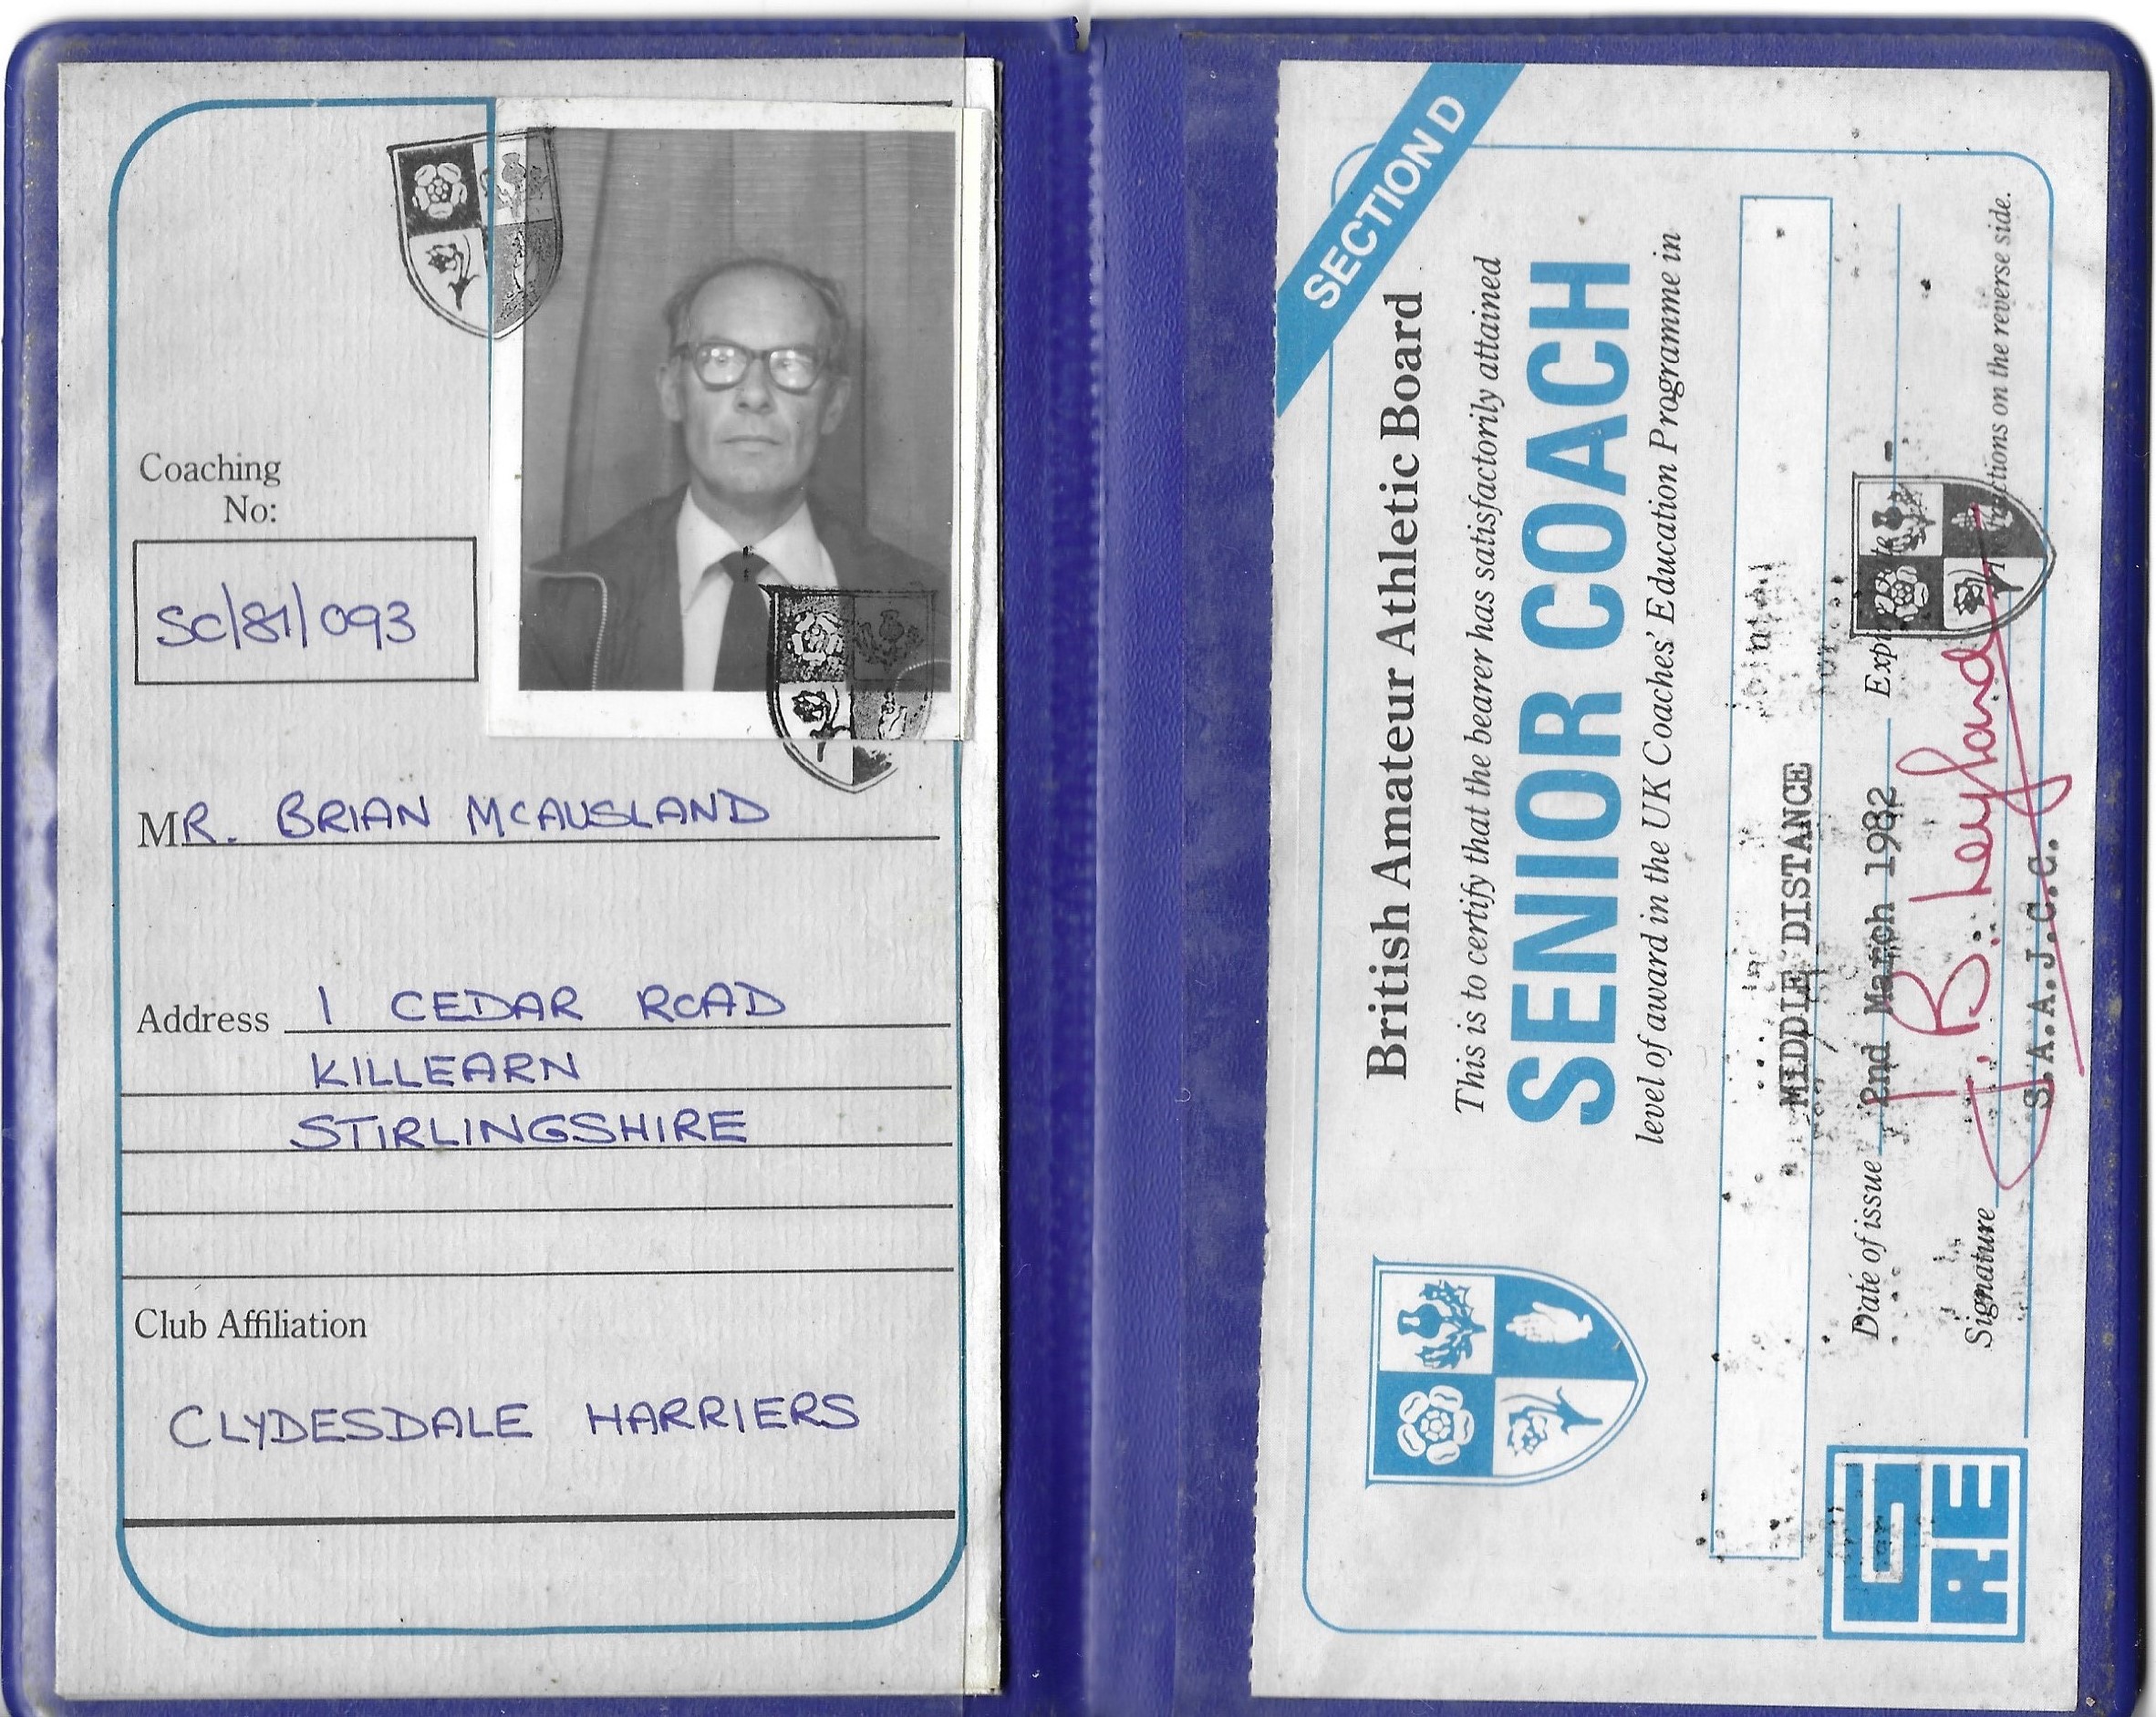 Coaching
No:
SC/81/093
MR. BRIAN MCAUSLAND
Address 1 CEDAR ROAD
KILLEARN
STIRLINGSHIRE
Club Affiliation
CLYDESDALE HARRIERS
SECTION D
British Amateur Athletic Board
This is to certify that the bearer has satisfactorily attained
SENIOR COACH
level of award in the UK Coaches' Education Programme in
MIDDLE DISTANCE
Date of issue 2nd March 1982
Signature
S.A.A.J.C.C.
on the reverse side.
GRE